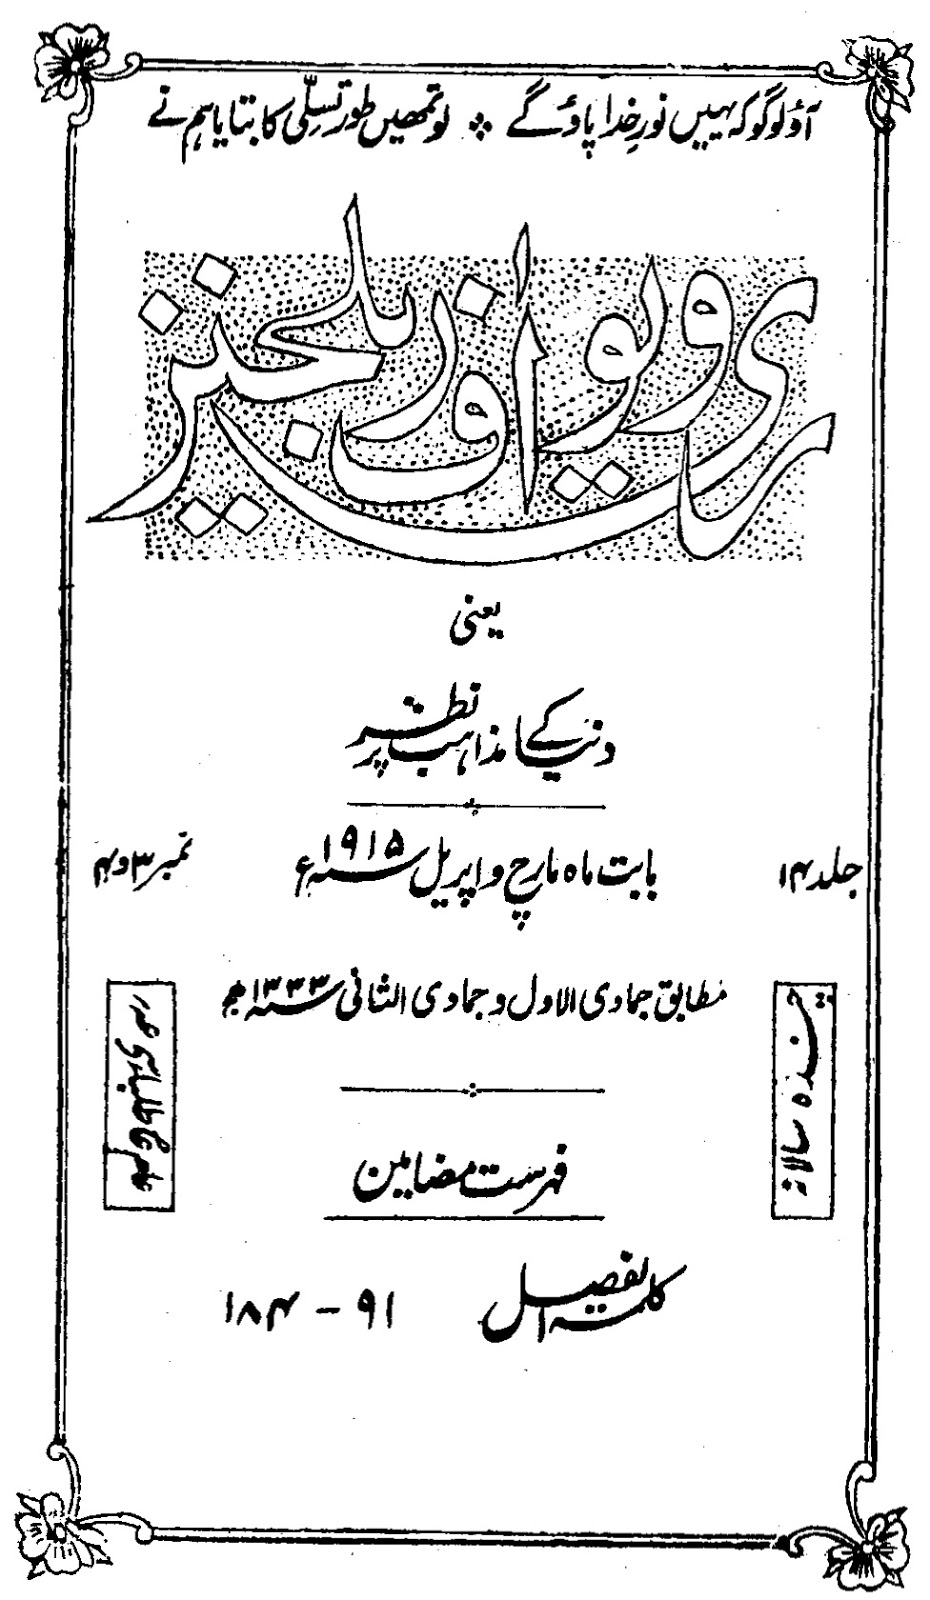 آؤ لوگو کہ یہیں نورِ خدا پاؤ گے ؞ لو تمھیں طور تسلّی کا بتایا ہم نے
ریویو اوف ریلیجنز
یعنی
دنیا کے مذاہب پر نظر
جلد ۱۴ بابت ماہ مارچ و اپریل سنہ ۱۹۱۵ء نمبر ۳ و ۴
مطابق جمادی الاول و جمادی الثانی سنہ ۱۳۳۳ھ
چندہ سالانہ
فہرست مضامین
کلمۃ الفصل ۹۱ – ۱۸۴